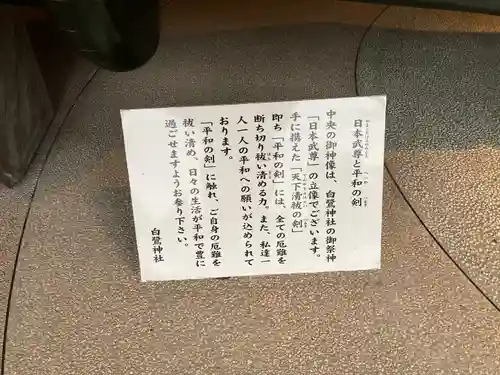 日本武尊と平和の剣
やまとたけるのみこと へいわ つるぎ
中央の御神像は、白鷺神社の御祭神
「日本武尊」の立像でございます。
手に携えた「天下清祓の剣」
即ち「平和の剣」には、全ての厄難を
断ち切り祓い清める力。また、私達一
人一人の平和への願いが込められて
おります。
「平和の剣」に触れ、ご自身の厄難を
祓い清め、日々の生活が平和で豊に
過ごせますようお参り下さい。
白鷺神社